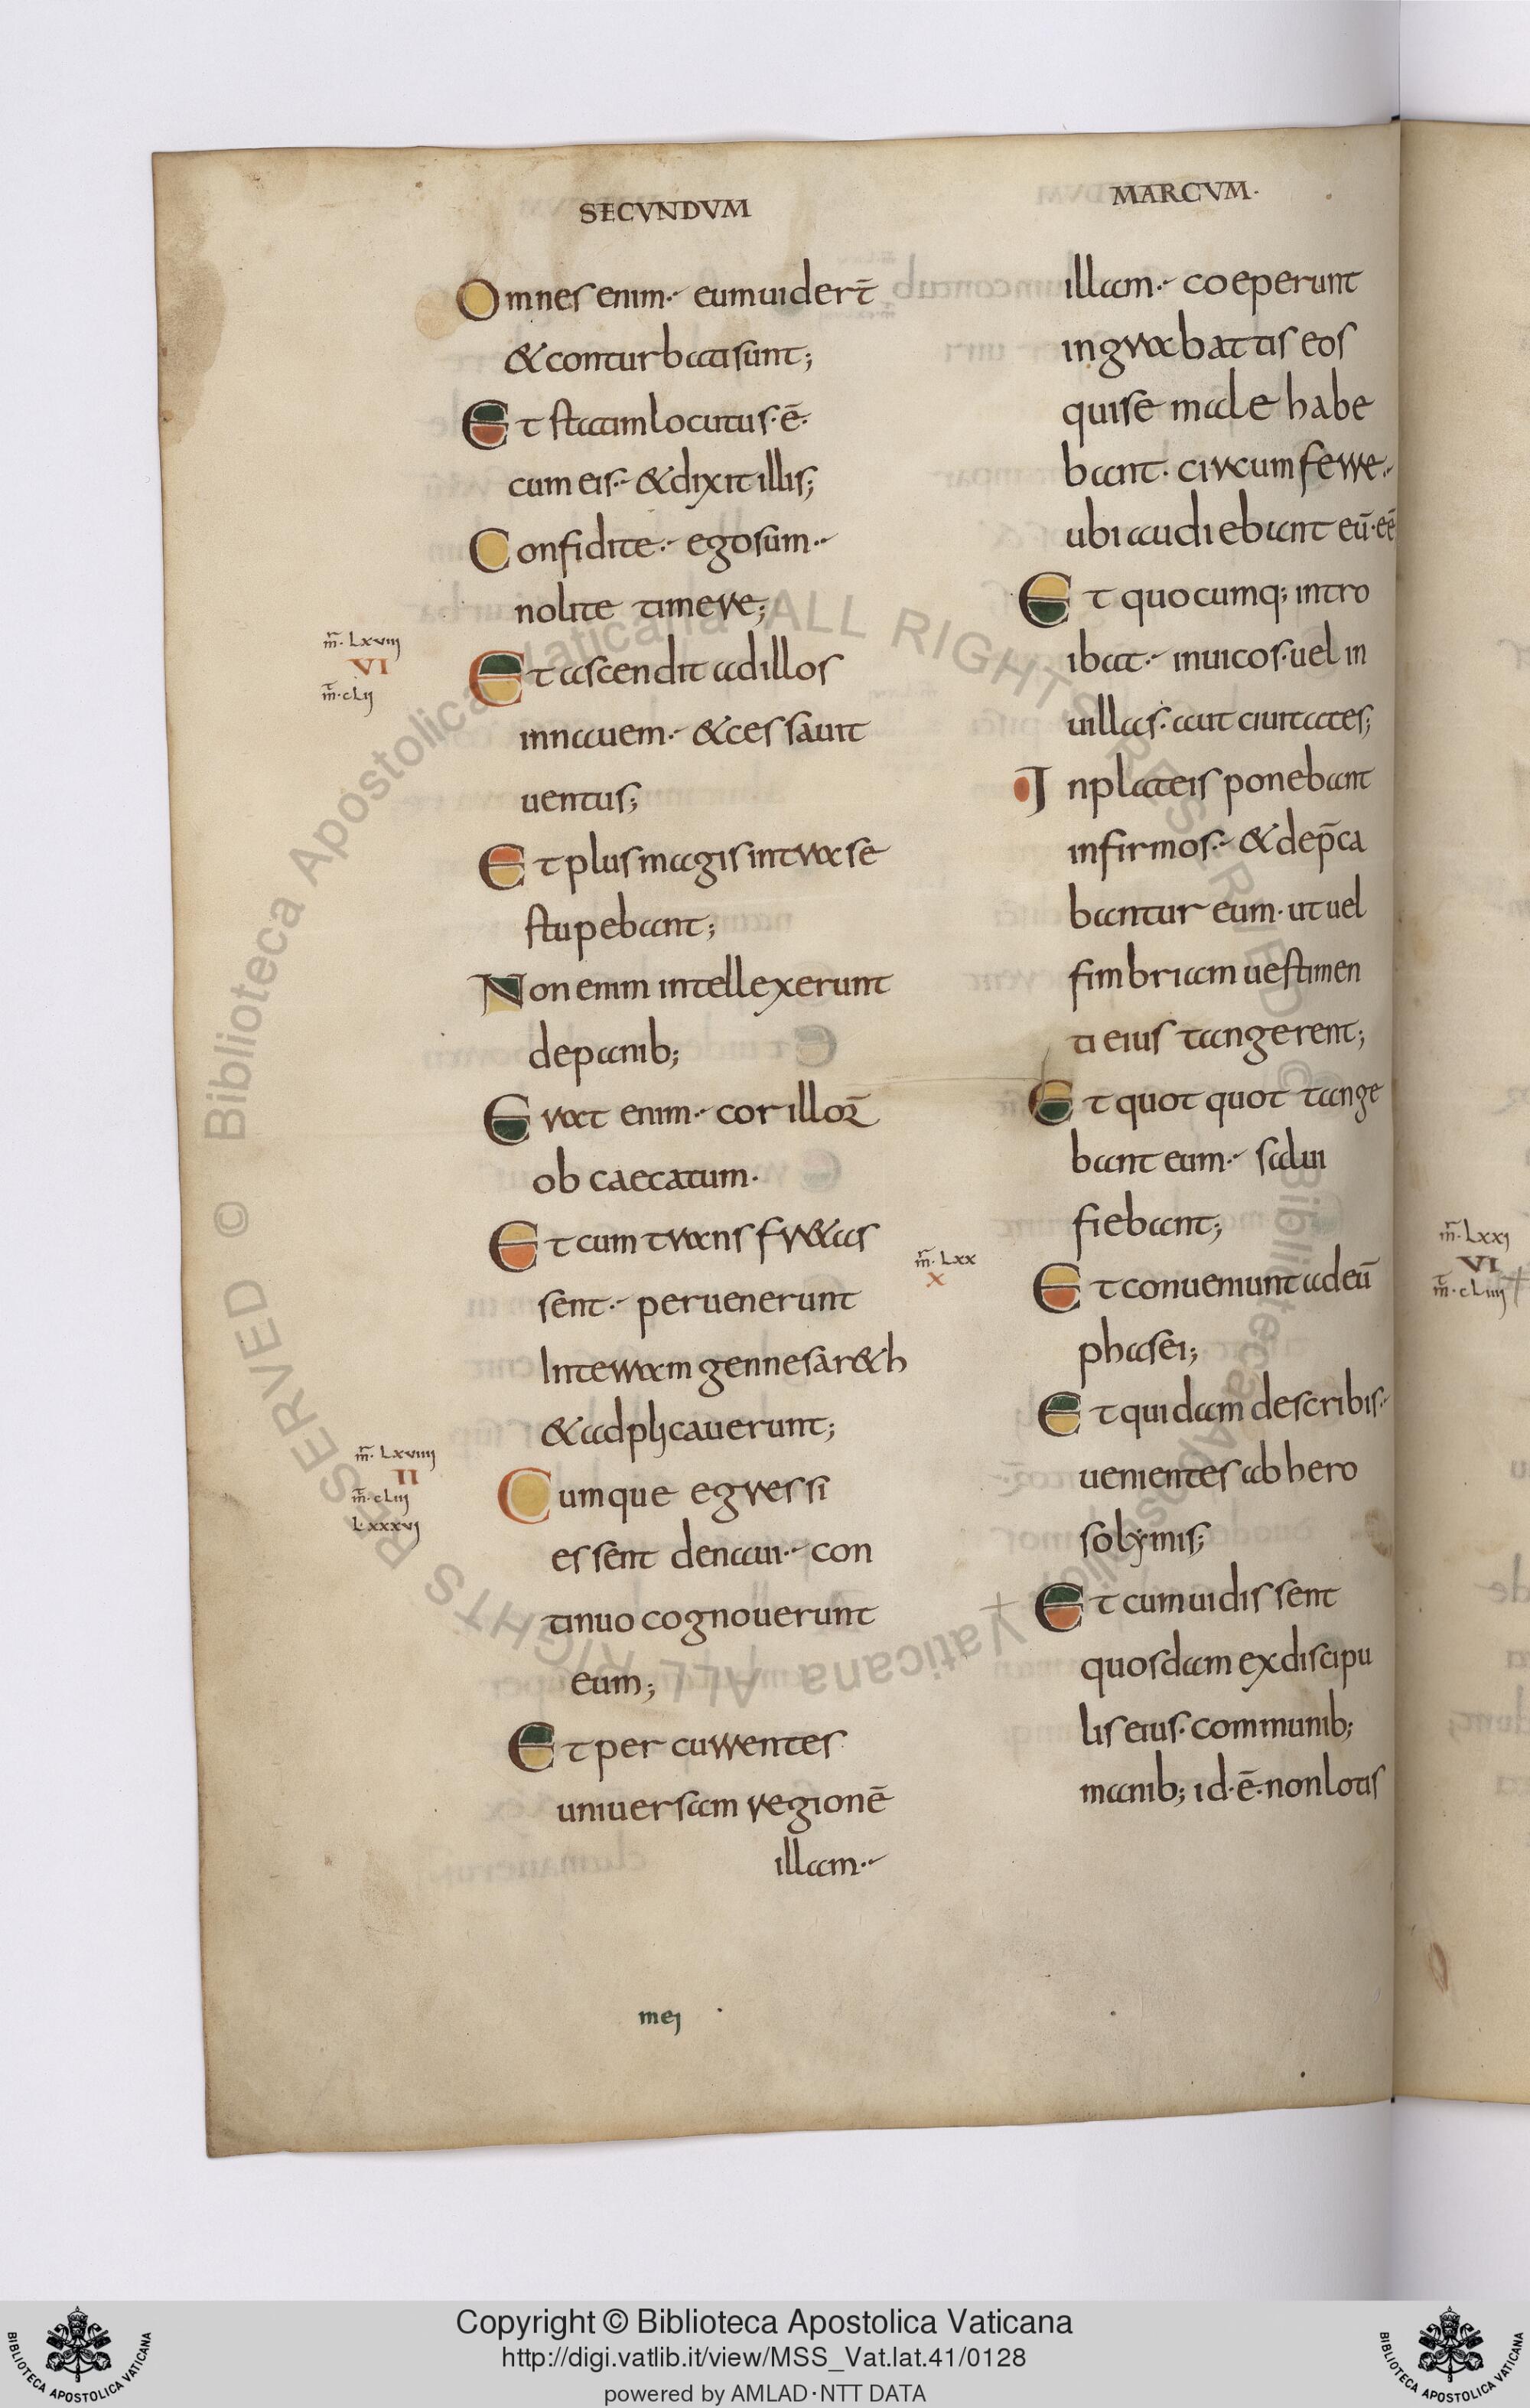 SECVNDVM
Omnes enim eum uider̄t
& conturbati sunt;
Et statim locutus·ē·
cum eis & dixit illis;
Confidite ego sum
nolite timere;
m̄·Lxviij
VI
m̄·cLij
Et ascendit ad illos
in nauem & cessauit
uentus;
Et plus magis intra se
stupebant;
Non enim intellexerunt
de panib;
Erat enim cor illoꝝ
obcaecatum·
Et cum transfr&as
sent peruenerunt
Interram gennesar&h
& adplicauerunt;
m̄·Lxviiij
II
m̄·cLiij
Lxxxvj
Cumque egressi
essent de naui con
tinuo cognouerunt
eum;
Et per currentes
uniuersam regionē
illam
mej
MARCVM·
illam coeperunt
in grabattis eos
qui se male habe
bant· circumferre
ubi audiebant eū·eē
Et quocumq; intro
ibat in uicos·uel in
uillas·aut ciuitates;
In plateis ponebant
infirmos & dep̄ca
bantur eum·ut uel
fimbriam uestimen
ti eius tangerent;
Et quot quot tange
bant eum salui
fiebant;
m̄·Lxx
x
Et conueniunt ad eū
phasei;
Et quidam describis
uenientes ab hero
solymis;
Et cum uidissent
quosdam ex discipu
lis eius·communib;
manib; id·ē·non lotis
m̄·Lxxj
VI
m̄·cLiiij
Copyright © Biblioteca Apostolica Vaticana
http://digi.vatlib.it/view/MSS_Vat.lat.41/0128
powered by AMLAD·NTT DATA
BIBLIOTECA APOSTOLICA VATICANA
BIBLIOTECA APOSTOLICA VATICANA
© Biblioteca Apostolica Vaticana ALL RIGHTS RESERVED © Biblioteca Apostolica Vaticana ALL RIGHTS RESERVED